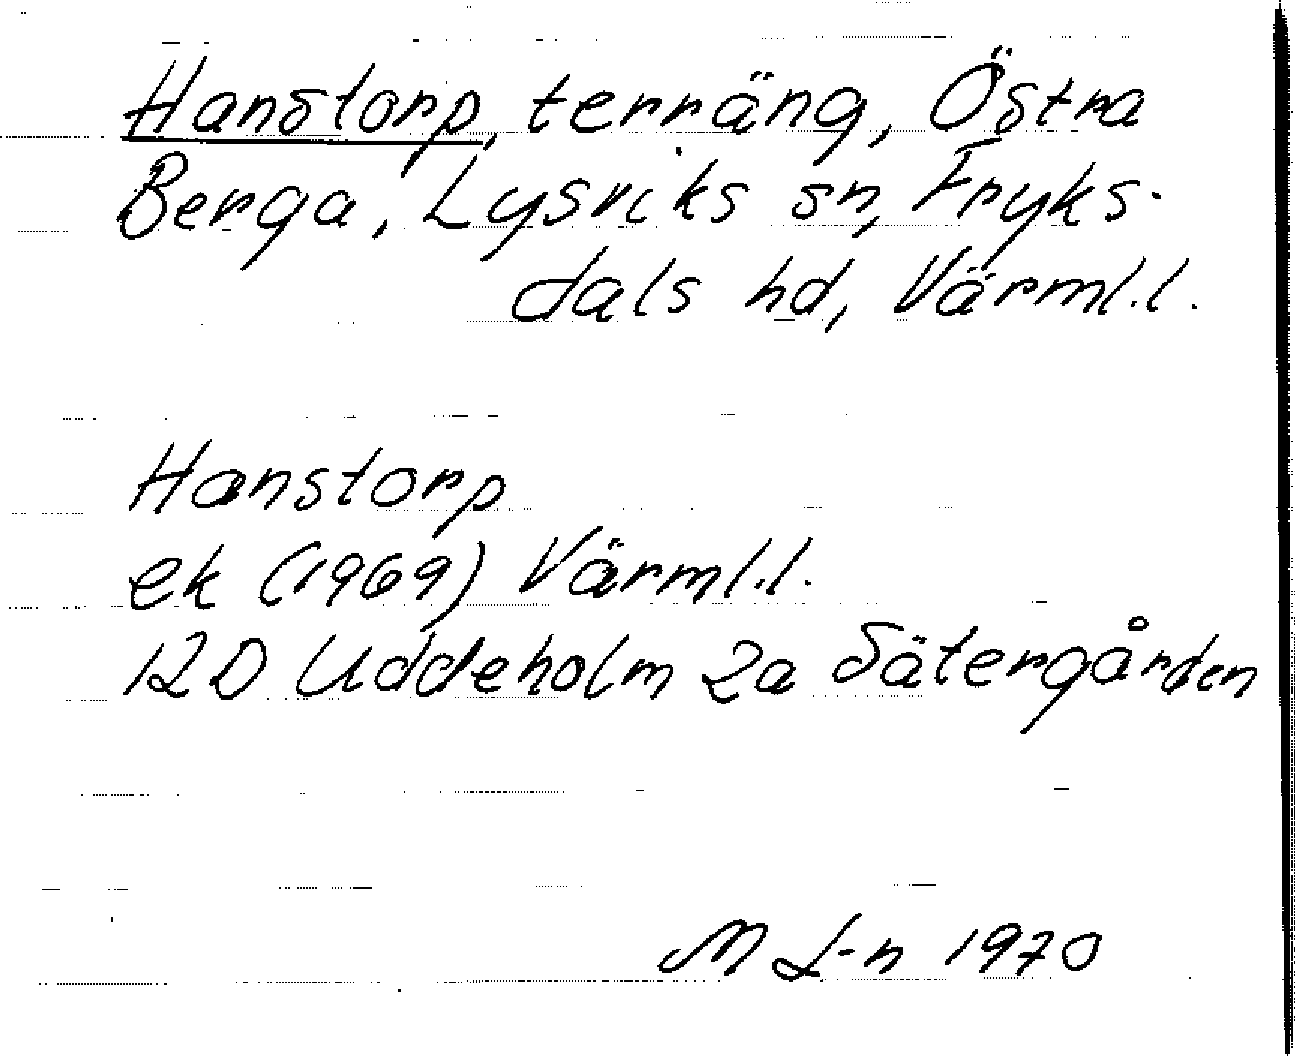 Hanstorp, terräng, Östra
Berga, Lysviks sn, Fryks-
dals hd, Värml.l.
Hanstorp
ek (1969) Värml.l.
12D Uddeholm 2a Sätergården
M L-n 1970